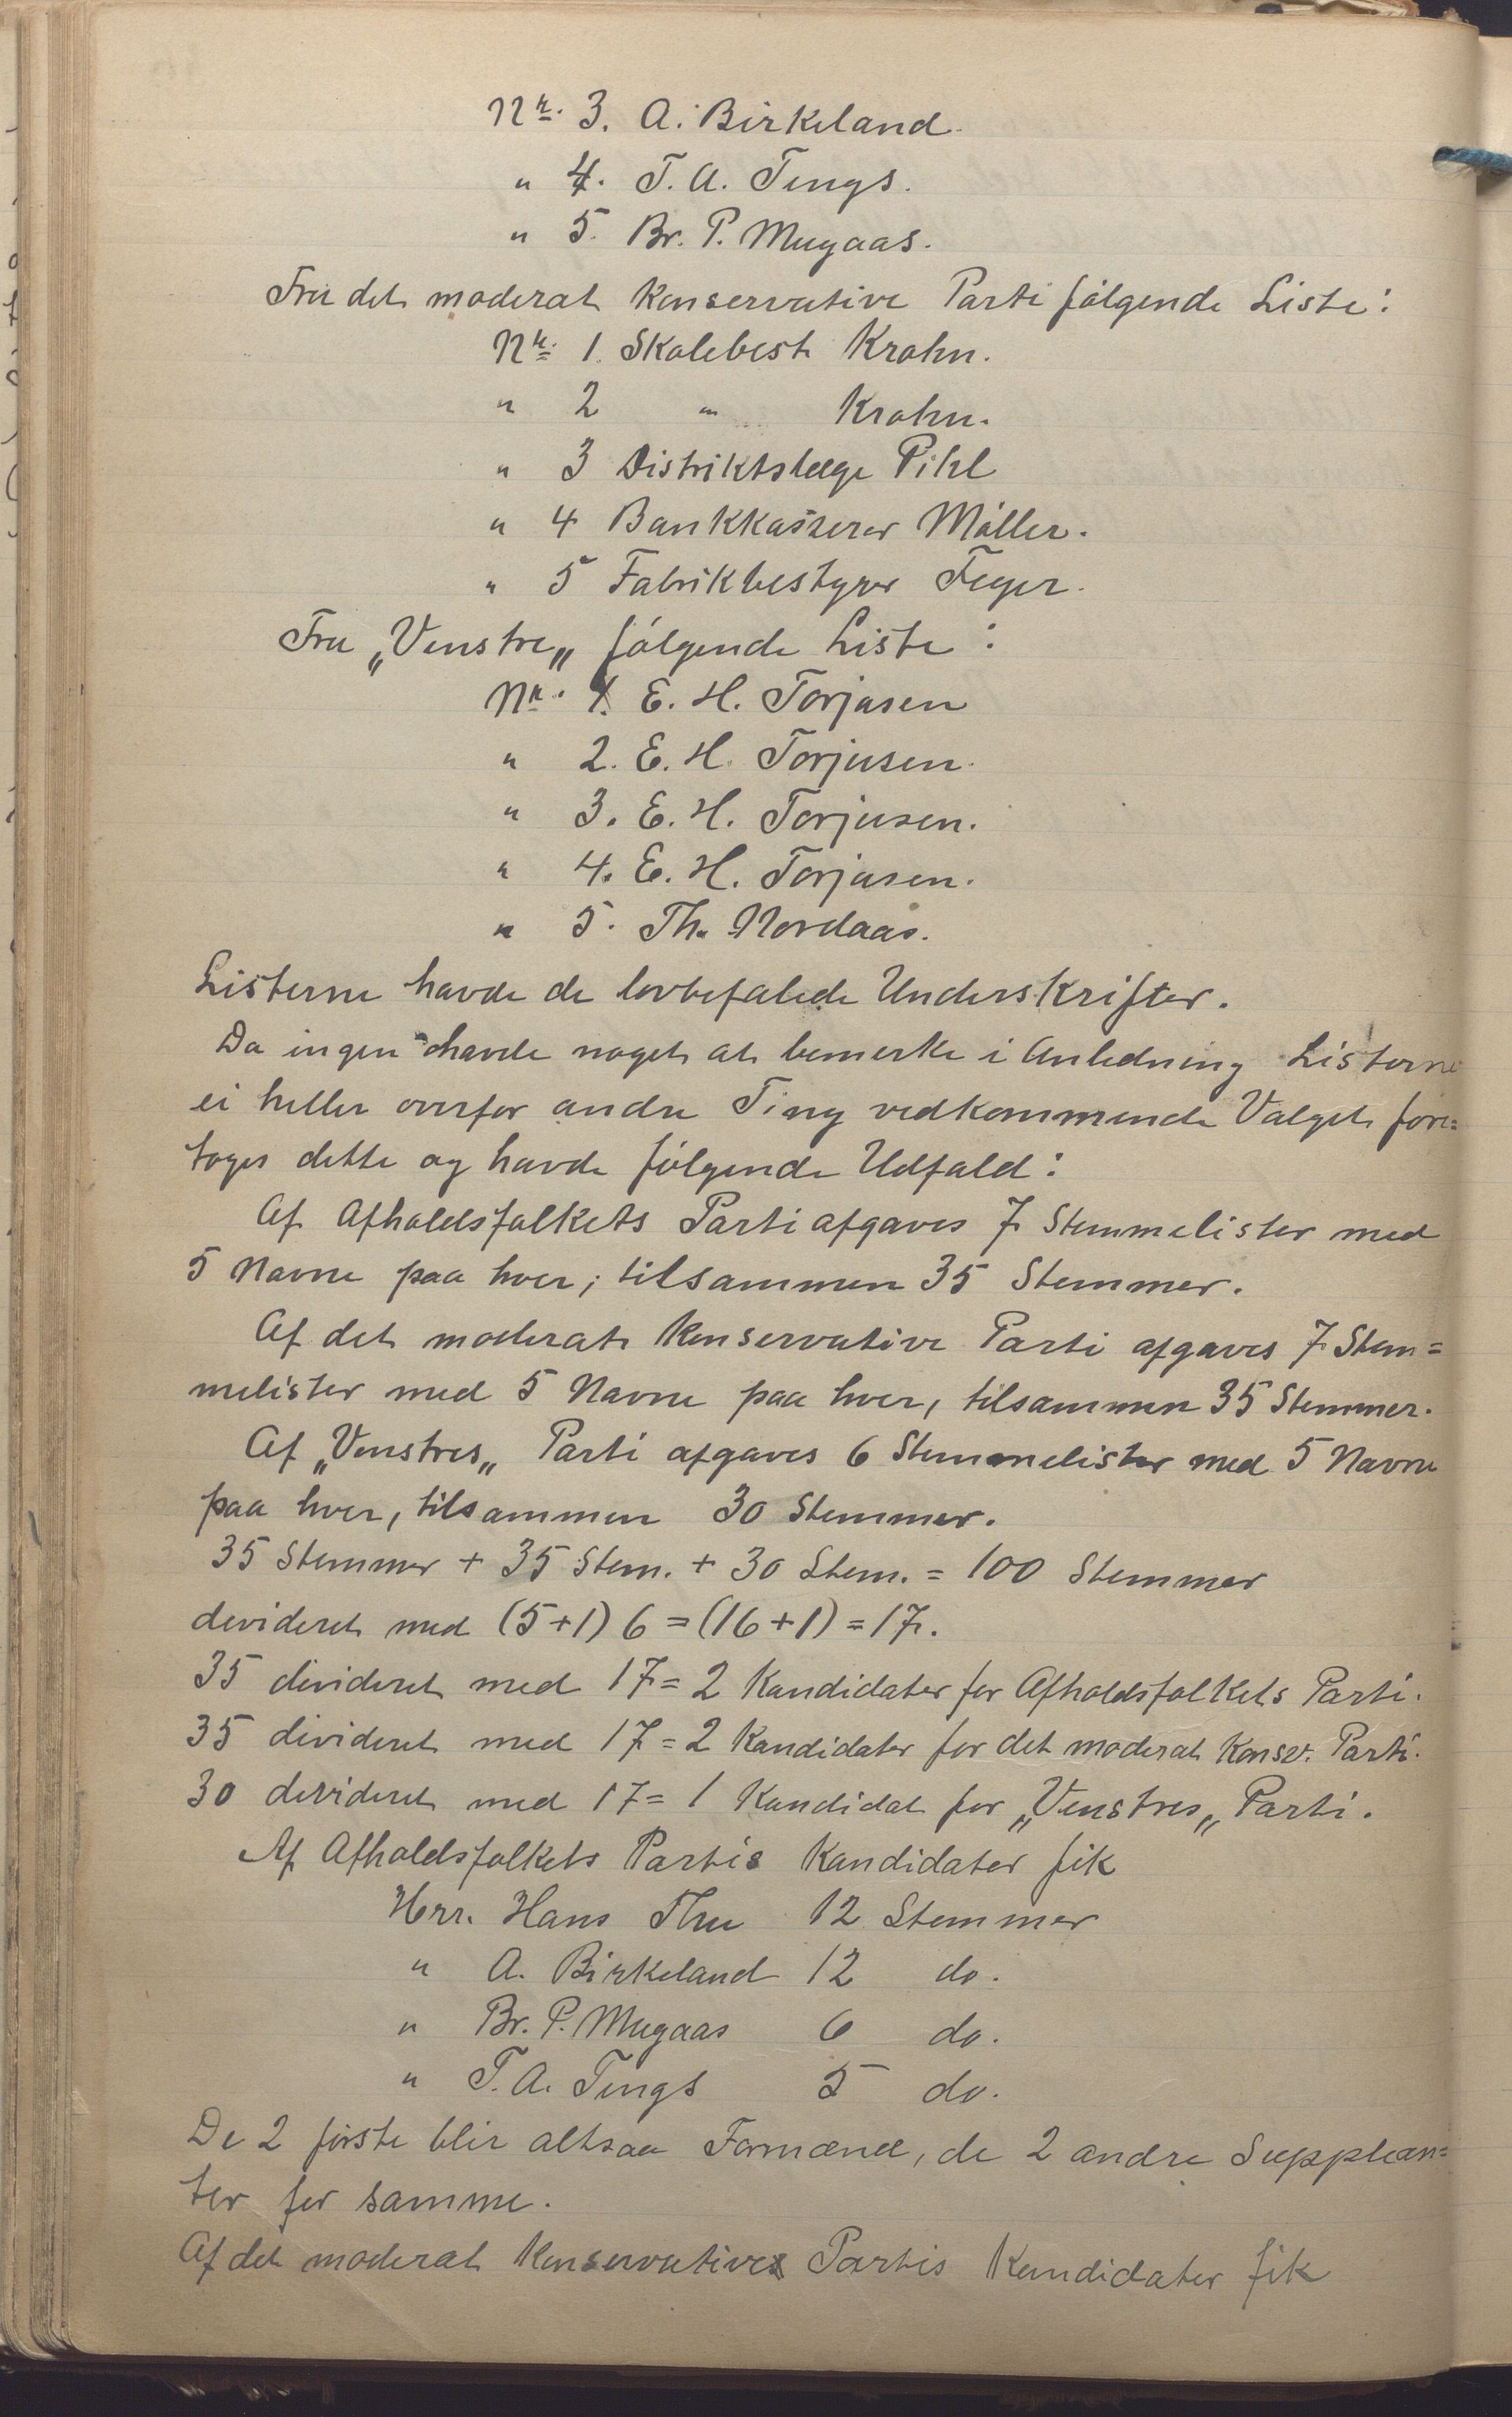 Nr. 3. A. Birkeland.
" 4. T. A. Tengs.
" 5. Br. P. Mugaas.
Fra det moderat konservative Parti følgende Liste:
Nr. 1. Skolebest. Krohn.
" 2 " Krohn.
" 3 Distriktslæge Pihl
" 4 Bankkasserer Møller.
" 5 Fabrikbestyrer Feyer.
Fra „Venstre„ følgende Liste:
Nr. 1. E. H. Torjusen
" 2. E. H. Torjusen.
" 3. E. H. Torjusen.
" 4. E. H. Torjusen.
" 5. Th. Nordaas.
Listerne havde de lovbefalede Underskrifter.
Da ingen havde noget at bemerke i Anledning Listerne
ei heller overfor andre Ting vedkommende Valget, fore=
toges dette og havde følgende Udfald:
Af Afholdsfolkets Parti afgaves 7 Stemmelister med
5 Navne paa hver; tilsammen 35 Stemmer.
Af det moderat konservative Parti afgaves 7 Stem=
melister med 5 Navne paa hver, tilsammen 35 Stemmer.
Af „Venstres„ Parti afgaves 6 Stemmelister med 5 Navne
paa hver, tilsammen 30 Stemmer.
35 Stemmer + 35 Stem. + 30 Stem. = 100 Stemmer
devideret med (5+1) 6 = (16+1) = 17.
35 devideret med 17 = 2 Kandidater for Afholdsfolkets Parti.
35 devideret med 17 = 2 Kandidater for det moderat Konsv. Parti.
30 devideret med 17 = 1 Kandidat for „Venstres„ Parti.
Af Afholdsfolkets Partis Kandidater fik
Herr. Hans Thu 12 Stemmer
" A. Birkeland 12 do.
" Br. P. Mugaas 6 do.
" T. A. Tengs 5 do.
De 2 første blir altsaa Formænd, de 2 andre Supplean=
ter for samme.
Af det moderat Konservative Partis Kandidater fik